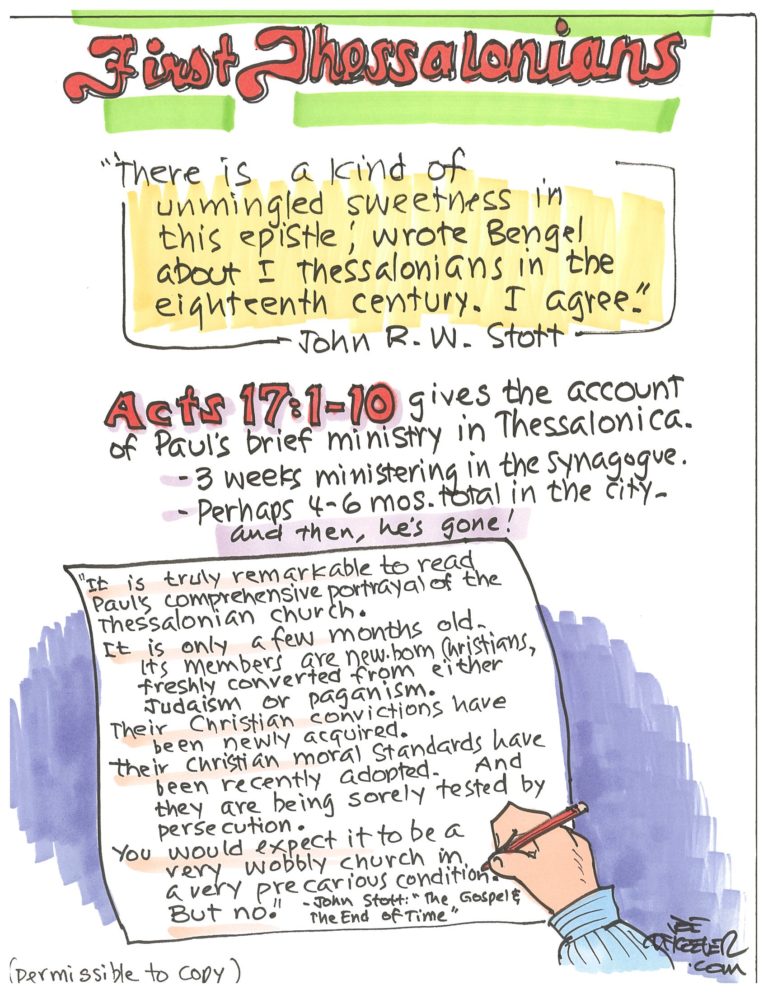 First Thessalonians
"There is a kind of
unmingled sweetness in
this epistle,' wrote Bengel
about I Thessalonians in the
eighteenth century. I agree."
John R. W. Stott
Acts 17:1-10 gives the account
of Paul's brief ministry in Thessalonica.
- 3 weeks ministering in the synagogue.
- Perhaps 4-6 mos. total in the city-
and then, he's gone!
"It is truly remarkable to read
Paul's comprehensive portrayal of the
Thessalonian church.
It is only a few months old.
Its members are new-born Christians,
freshly converted from either
Judaism or paganism.
Their Christian convictions have
been newly acquired.
Their Christian moral standards have
been recently adopted. And
they are being sorely tested by
persecution.
You would expect it to be a
very wobbly church in
a very precarious condition.
But no." - John Stott: "The Gospel &
The End of Time"
JOE
MCKEEVER
.com
(permissible to copy)